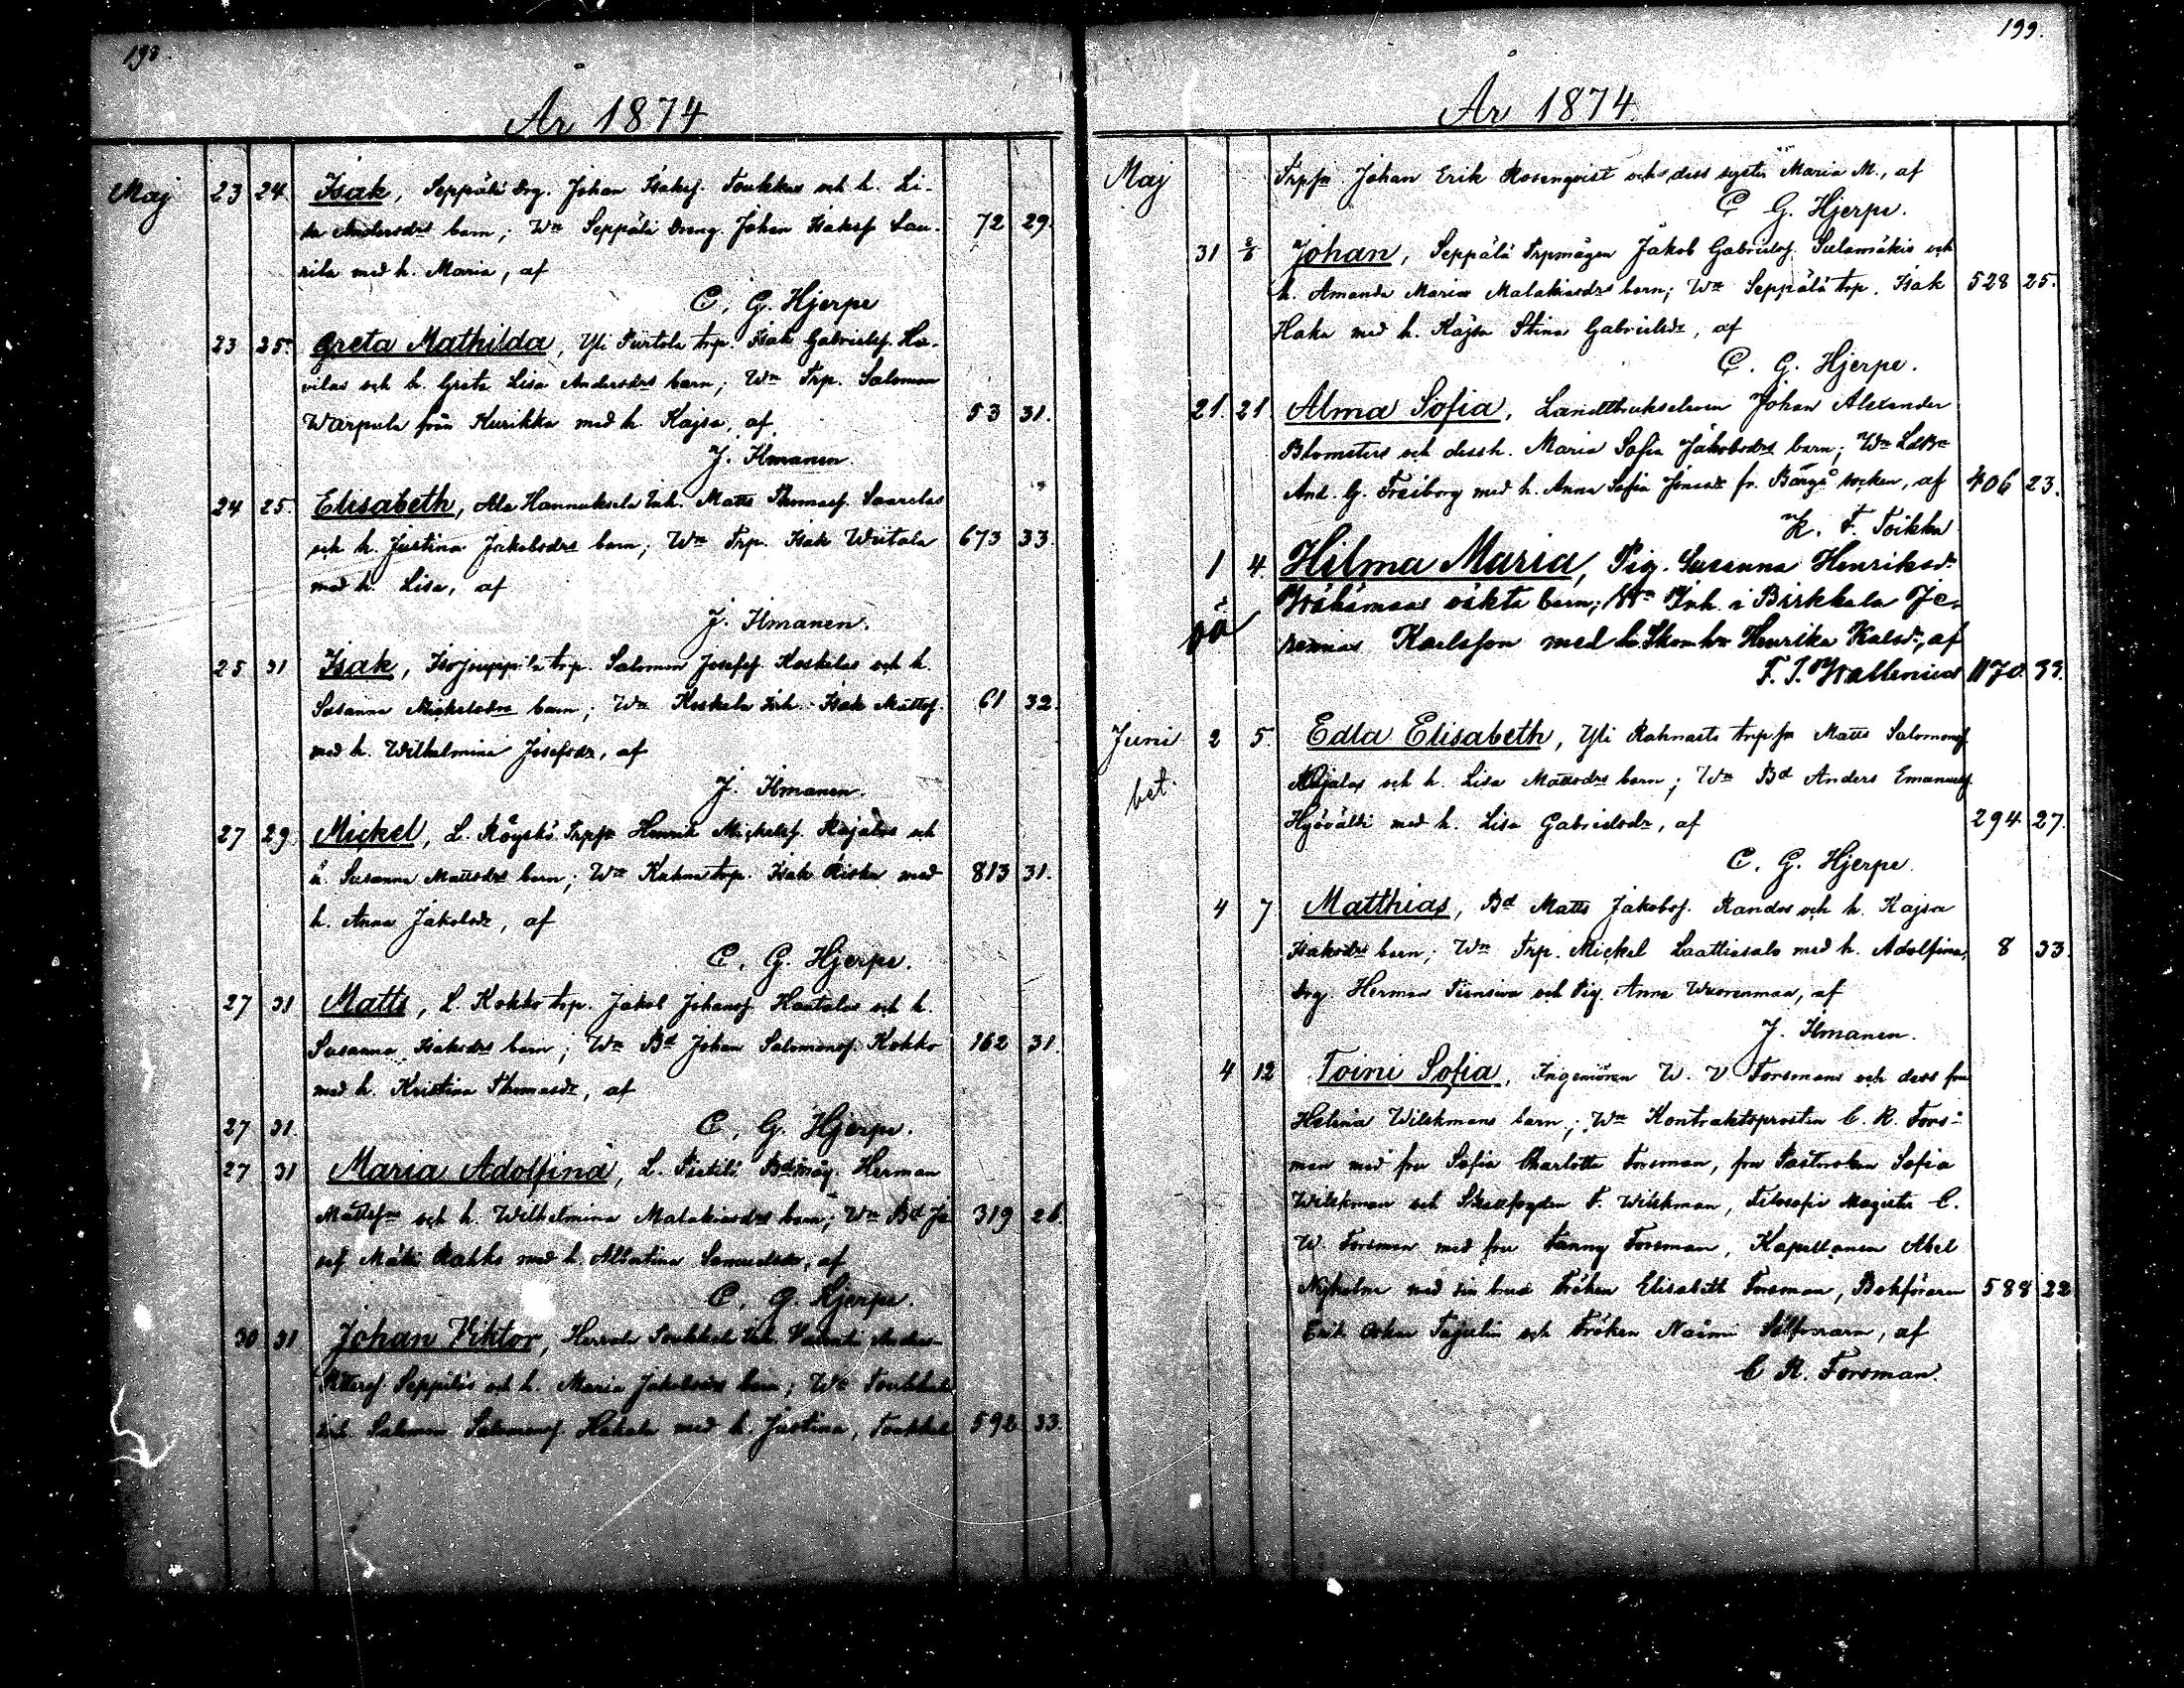 198.
År 1874
Maj 23 24. Isak, Seppälä drg. Johan Isaksf. Toukkas och h. Li-
sa Andersdrs barn; Wn Seppälä dreng Johan Isaksf Lau- 72 29.
rila med h. Maria, af
C. G. Hjerpe
23 25. Greta Mathilda, Yli Purtola trp. Isak Gabrielsf. Ha-
vilas och h. Greta Lisa Andersdrs barn; Wn Trp. Salomon
Warpula från Kurikka med h. Kajsa, af 53 31.
J. Ilmanen.
24 25. Elisabeth, Ala Hannuksela Inh. Matts Thomasf. Saarelas
och h. Justina Jakobsdrs barn; Wn Trp. Isak Wiitala 673 33.
med h. Lisa, af
J. Ilmanen.
25 31 Isak, Isojuuppila trp. Salomon Josefsf. Koskelas och h.
Susanna Mickelsdrs barn; Wn Koskela Inh. Isak Mattsf. 61 32.
med h. Wilhelmina Josefsdr, af
J. Ilmanen.
27 29. Mickel, L. Röyskö Trpfn Henrik Mickelsf. Rajalas och
h. Susanna Mattsdrs barn; Wn Kahna trp. Isak Riska med 813 31.
h. Anna Jakobsdr, af
C. G. Hjerpe.
27 31 Matts, L. Kokko trp. Jakob Johansf. Hautalas och h.
Susanna Isaksdrs barn; Wn Bd Johan Salomonsf. Kokko 162 31.
med h. Kristina Thomasdr, af
27 31. C. G. Hjerpe.
27 31 Maria Adolfina, L. Pirtilä Bdmåg. Herman
Mattsfns och h. Wilhelmina Malakiasdrs barn; Wn Bd Jo 319 26.
sef Mäki Rahko med h. Albertina Samuelsdr, af
C. G. Hjerpe.
30 31. Johan Viktor, Toukkola Inh.
Seppäläs och h. Maria Jakobsdrs barn; Wn Toukkola
inh. Salomon Salomonsf. Hakala med h. Justina, Toukkola 592 33.
199.
År 1874.
Maj Trpfn Johan Erik Rosenqvist och dess syster Maria M., af
C. G. Hjerpe.
31 2/6 Johan, Seppälä Trpmågen Jakob Gabrielsf. Sulamäkis och
h. Amanda Maria Malakiasdrs barn; Wn Seppälä trp. Isak 528 25.
Haka med h. Kajsa Stina Gabrielsdr, af
C. G. Hjerpe.
21. 21 Alma Sofia, Landtbrukseleven Johan Alexander
Blomsters och dess h. Maria Sofia Jakobsdrs barn; Wn
And. G. Freiborg med h. Anna Sofia Jonasdr fr. Borgå socken, af 406 23.
K. F. Toikka
1 4. Hilma Maria, Pig. Susanna Henriksdr
Wähämaas oäkta barn; Wn Inh. i Birkkala Je-
oä remias Karlsson med h. Henrika Kalsdr, af
F. I. Wallenius 1170. 33.
Juni 2 5. Edla Elisabeth, Yli Rahnasto trpfn Matts Salomonsf
bet. Alajalas och h. Lisa Mattsdrs barn; Wn Bd Anders Emanuelsf.
Hyövälti med h. Lisa Gabrielsdr, af 294 27.
C. G. Hjerpe.
4 7 Matthias, Bd Matts Jakobsf. Randos och h. Kajsa
Isaksdrs barn; Wn Trp. Mickel Laattiasalo med h. Adolfina, 8 33.
drg. Herman och Pig. Anna Wuorenmaa, af
J. Ilmanen.
4 12 Toini Sofia, Ingeniören W. V Forsmans och dess fru
Helena Wilskmans barn; Wn Kontraktsprosten C. R. Fors-
man med fru Sofia Charlotta Forsman, fru Pastorskan Sofia
Wilskman och F. Wilskman, Filosofie Magister C.
W. Forsman med fru Fanny Forsman, Kapellanen Abel
Nyholm med sin brud Fröken Elisabeth Forsman, Bokföraren 588 22
Erik Oskar och Fröken Naimi Silfvervara, af
C R. Forsman.